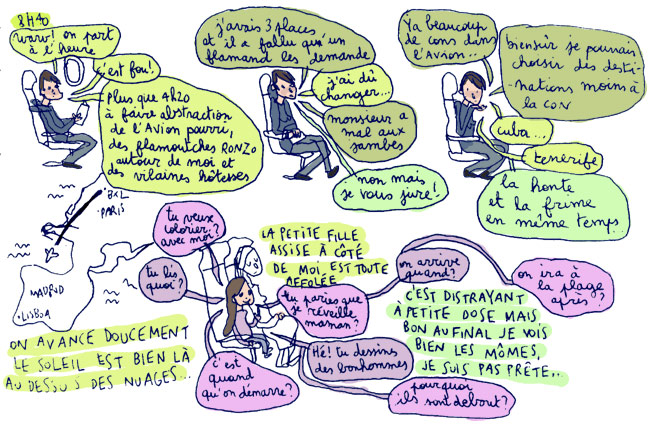 8H40
waw! on part
à l'heure
c'est fou!
Plus que 4h20
à faire abstraction
de l'Avion pourri,
des flamouches RONZO
autour de moi et
des vilaines hôtesses
j'avais 3 places
et il a fallu qu'un
flamand les demande
j'ai dû
changer...
monsieur a
mal aux
jambes
non mais
je vous jure!
Ya beaucoup
de cons dans
l'Avion...
biensûr je pouvais
choisir des desti-
-nations moins à
la con
cuba...
tenerife
la honte
et la frime
en même temps...
BXL
PARIS
MADRID
LISBOA
ON AVANCE DOUCEMENT
LE SOLEIL EST BIEN LÀ
AU DESSUS DES NUAGES...
tu veux
colorier?
avec moi?
LA PETITE FILLE
ASSISE À CÔTÉ
DE MOI, EST TOUTE
AFFOLÉE
tu lis
quoi?
tu paries que
je réveille
maman?
on arrive
quand?
on ira à
la plage
après?
c'est
quand
qu'on démarre?
Hé! tu dessines
des bonhommes
pourquoi
ils sont debout?
C'EST DISTRAYANT
À PETITE DOSE MAIS
BON AU FINAL JE VOIS
BIEN LES MÔMES,
JE SUIS PAS PRÊTE...